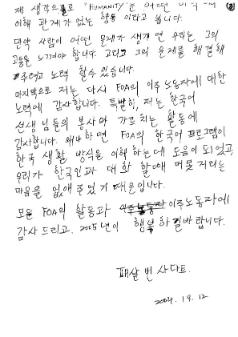 제 생각으로 "HUMANITY"는 어떤
이해 관계가 없는 활동 이라고 봅니다.
만약 사람이 어떤 문제가 생기면 우리는 그의
고통을 느끼야하 합니다 그의 문제를 해결해
주려고 노력 할수 있습니다.
마지막으로 저는 다시 FOA의 이주 노동자에 대한
노력에 감사합니다. 특별히, 저는 한국어
선생님들의 봉사와 가르치는 활동에
감사합니다. 왜냐하면 FOA의 한국어 프로그램이
한국 생활 방식을 이해 하는데 도움이 되었고,
우리가 한국인과 대화 할때
마음을 없애 주었기 때문입니다.
모든 FOA의 활동과 이주노동자에
감사 드리고, 2005년이 행복하길바랍니다.
빈 사다트
2004. 19. 12